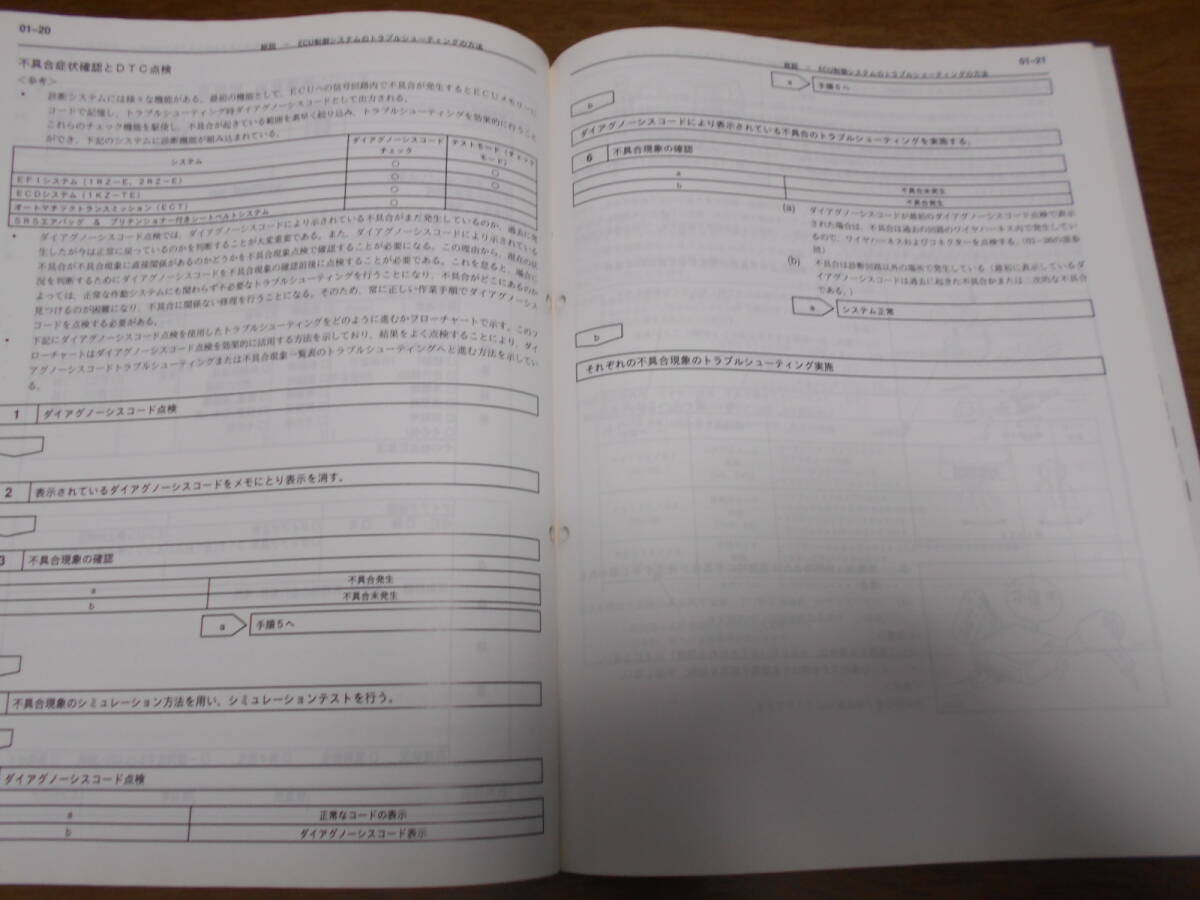 01-20
総説 - ECU制御システムのトラブルシューティングの方法
不具合症状確認とDTC点検
<参考>
• 診断システムには様々な機能がある。最初の機能として、ECUへの信号回路内で不具合が発生するとECUメモリーに
コードで記憶し、トラブルシューティング時ダイアグノーシスコードとして出力される。
これらのチェック機能を駆使し、不具合が起きている範囲を素早く絞り込み、トラブルシューティングを効果的に行うこと
ができ、下記のシステムに診断機能が組み込まれている。
システム ダイアグノーシスコードチェック テストモード(チェックモード)
EFIシステム(1RZ-E, 2RZ-E) ○ ○
ECDシステム(1KZ-TE) ○ ○
オートマチックトランスミッション(ECT) ○
SRSエアバッグ & プリテンショナー付きシートベルトシステム ○
• ダイアグノーシスコード点検では、ダイアグノーシスコードにより示されている不具合がまだ発生しているのか、過去に発
生したが今は正常に戻っているのかを判断することが大変重要である。また、ダイアグノーシスコードにより示されている
不具合が不具合現象に直接関係があるのかどうかを不具合現象点検で確認することが必要になる。この理由から、現在の状
況を判断するためにダイアグノーシスコードを不具合現象の確認前後に点検することが必要である。これを怠ると、場合に
よっては、正常な作動システムにも関わらず不必要なトラブルシューティングを行うことになり、不具合がどこにあるのか
見つけるのが困難になり、不具合に関係ない修理を行うことになる。そのため、常に正しい作業手順でダイアグノーシス
コードを点検する必要がある。
• 下記にダイアグノーシスコード点検を使用したトラブルシューティングをどのように進むかフローチャートで示す。このフ
ローチャートはダイアグノーシスコード点検を効果的に活用する方法を示しており、結果をよく点検することにより、ダイ
アグノーシスコードトラブルシューティングまたは不具合現象一覧表のトラブルシューティングへと進む方法を示してい
る。
1 ダイアグノーシスコード点検
2 表示されているダイアグノーシスコードをメモにとり表示を消す。
3 不具合現象の確認
a 不具合発生
b 不具合未発生
a 手順5へ
不具合現象のシミュレーション方法を用い、シミュレーションテストを行う。
ダイアグノーシスコード点検
a 正常なコードの表示
b ダイアグノーシスコード表示
総説 - ECU制御システムのトラブルシューティングの方法
01-21
a 手順6へ
b
ダイアグノーシスコードにより表示されている不具合のトラブルシューティングを実施する。
6 不具合現象の確認
a 不具合未発生
b 不具合発生
(a) ダイアグノーシスコードが最初のダイアグノーシスコード点検で表示
された場合は、不具合は過去の回路のワイヤハーネス内で発生してい
るので、ワイヤハーネスおよびコネクターを点検する。(01-26の頁参
照)
(b) 不具合は診断回路以外の場所で発生している(最初に表示しているダ
イアグノーシスコードは過去に起きた不具合かまたは二次的な不具合
である。)
a システム正常
b
それぞれの不具合現象のトラブルシューティング実施